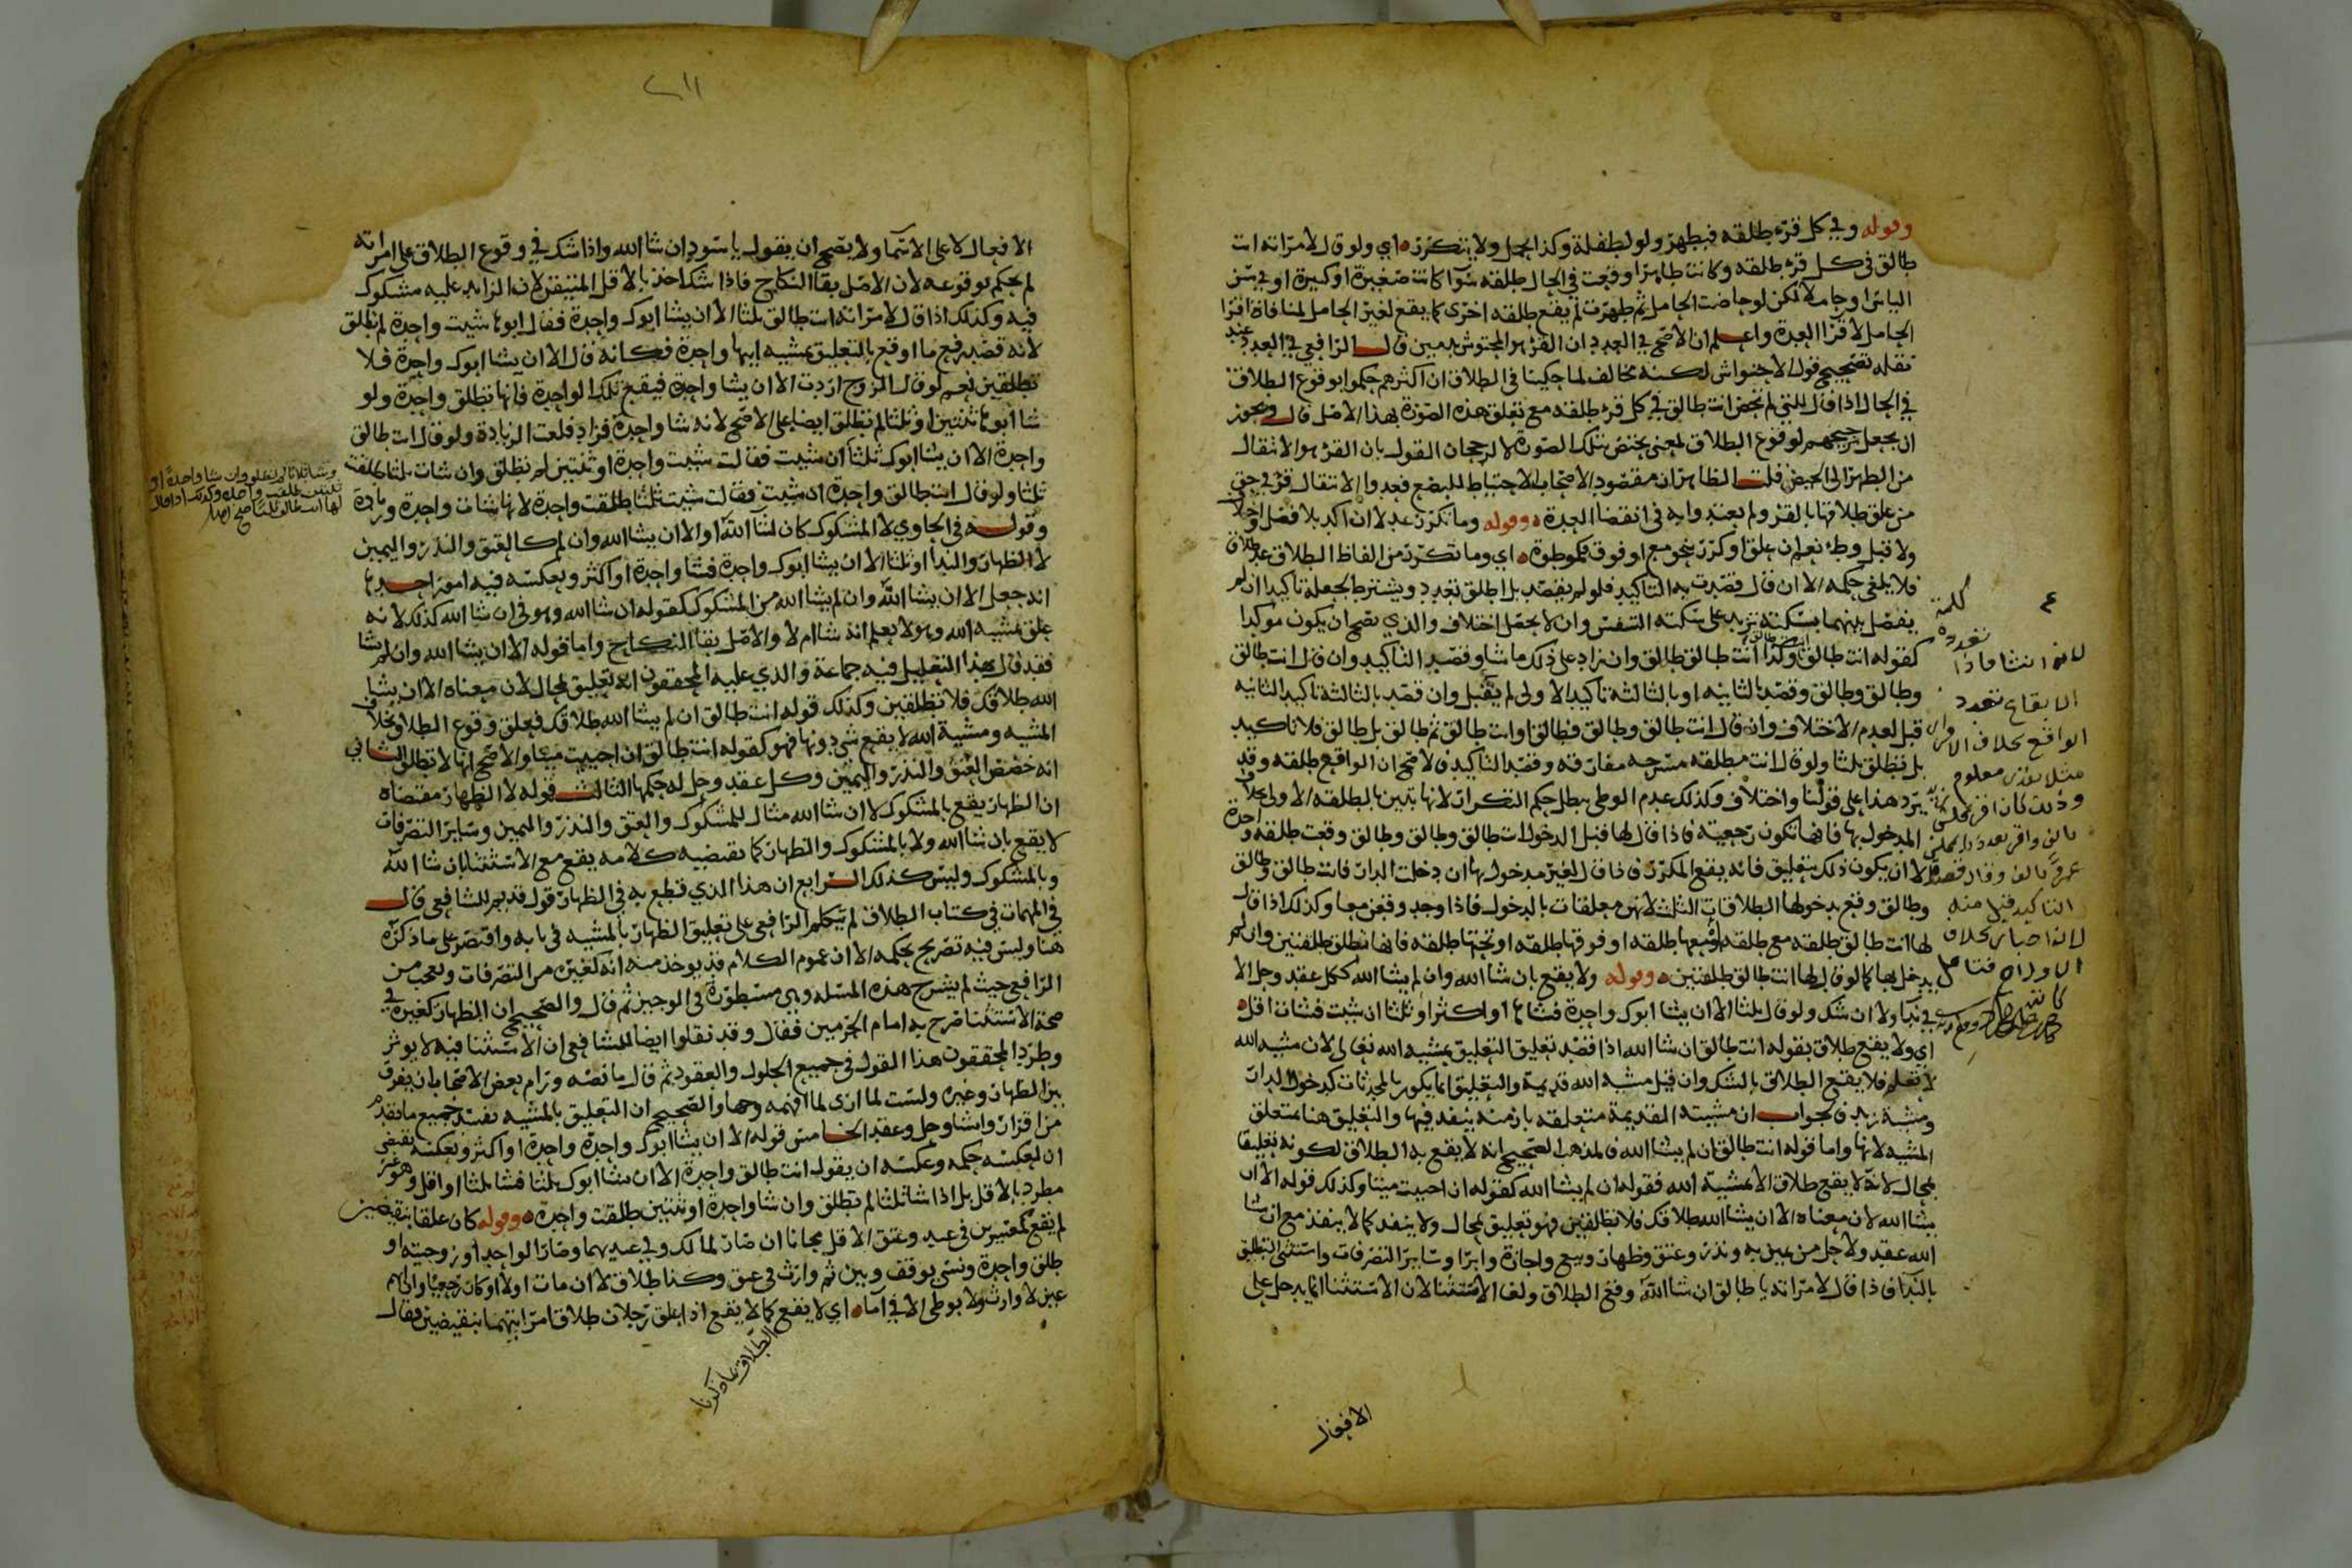 وقوله وفي كل قرء طلقه فبطهر ولو لطفلة وكذا لحمل ولا يتكرر ه اي ولو قال لامراته انت
طالق في كل قرء طلقه وكانت طاهرا وقعت في الحال طلقه سوآ كانت صغيرة او كبيرة او في سن
الياس او حاملا لكن لو حاضت الحامل ثم طهرت لم يقع طلقه اخرى كما يقع لغير الحامل لمنافاة اقرا
الحامل لاقرا العدة واعلم ان الاصح في العدد ان القرء هو المحتوش بدمين قال الرافعي في العدد عند
نقله تصحيح قول الاحتواش لكنه مخالف لما حكينا في الطلاق ان اكثرهم حكموا بوقوع الطلاق
في الحال اذا قال للتي لم تحض انت طالق في كل قرء طلقه مع تعلق هذه الصورة بهذا الاصل قال ويجوز
ان يجعل ترجيحهم لوقوع الطلاق لمعنى يختص بتلك الصورة لا لرجحان القول بان القرء هو الانتقال
من الطهر الى الحيض قلت الظاهر ان مقصود الاصحاب الاحتياط للبضع فعدوا الانتقال قرءا في حق
من علق طلاقها بالقرء ولم يعتدوا به في انقضا العدة ه وقوله وما تكرر عدلا ان اكد بلا فصل واختلاف
ولا قبل وطء نعم ان علق او كرر بنحو مع او فوق فكموطوة ه اي وما تكرر من الفاظ الطلاق عد طلاق
فلا يلغى حكمه الا ان قال قصدت به التاكيد فلو لم يقصد بل اطلق تعدد ويشترط لجعله تاكيدا ان لم
يفصل بينهما بسكتة تزيد على سكتة التنفس وان لا يحصل اختلاف والذي يصح ان يكون موكدا
كقوله انت طالق وكذا انت طالق طالق وان زاد على ذلك ما شا وقصد التاكيد وان قال انت طالق
وطالق وطالق وقصد بالثانيه او بالثالثة تاكيد الاولى لم يقبل وان قصد بالثالثة تاكيد الثانيه
قبل لعدم الاختلاف وان قال انت طالق وطالق فطالق او انت طالق ثم طالق بل طالق فلا تاكيد
بل تطلق ثلثا ولو قال انت مطلقه مسرحه مفارقه وقصد التاكيد فالاصح ان الواقع طلقه وقد
يرد هذا على قولنا واختلاف وكذلك عدم الوطى يبطل حكم التكرار لانها تبين بالطلقه الاولى بخلاف
المدخول بها فانها تكون رجعية فاذا قال لها قبل الدخول انت طالق وطالق وطالق وقعت طلقه واحدة
الا ان يكون ذلك بتعليق فانه يقع المكرر فاذا قال لغير مدخول بها ان دخلت الدار فانت طالق وطالق
وطالق وقع بدخولها الطلاقات الثلث لانهن معلقات بالدخول فاذا وجد وقعن معا وكذلك اذا قال
لها انت طالق طلقه مع طلقه او معها طلقه او فوقها طلقه او تحتها طلقه فانها تطلق طلقتين وان لم
يدخل بها كما لو قال لها انت طالق طلقتين ه وقوله ولا يقع بان شا الله وان لم يشا الله ككل عقد وحل الا
في ندا ولا ان شك ولو قال ثلثا الا ان يشا ابوك واحدة فشاها او اكثر او ثلثا ان شيت فشات اقل ه
اي ولا يقع طلاق بقوله انت طالق ان شا الله اذا قصد تعليق التعليق بمشيه الله تعالى لان مشيه الله
لا تعلم فلا يقع الطلاق بالشك وان قيل مشيه الله قديمة والتعليق انما يكون بالمحدثات كدخول الدار
ومشية زيد فالجواب ان مشيته القديمة متعلقه بازمنه ينفد فيها والتعليق هنا متعلق
المشيه لا بها واما قوله انت طالق ان لم يشا الله فالمذهب الصحيح انه لا يقع به الطلاق لكونه تعليقا
بمحال لانه لا يقع طلاق الا بمشية الله فقوله ان لم يشا الله كقوله ان احييت ميتا وكذلك قوله الا ان
يشا الله لان معناه الا ان يشا الله طلاقك فلا تطلقين فهو تعليق بمحال ولا ينفد كما لا ينفذ مع ان شا
الله عقد ولا حل من يمين به ونذر وعتق وظهار وبيع واجارة وابرا وساير التصرفات واستثنى التعليق
بالندا فاذا قال لامراته يا طالق ان شا الله وقع الطلاق ولغا الاستثنا لان الاستثنا انما يدخل على
كلمة
لانه انشا فاذا تعدده
الايقاع تعدد
الواقع بخلاف الاقرار
وذلك كان اقر بمجلس
التاكيد قبل منه
لانه اخبار بخلاف
الاول فتامل
الافعال
الافعال لا على الاسما ولا يصح ان يقول يا اسود ان شا الله واذا شك في وقوع الطلاق على امراته
لم يحكم بوقوعه لان الاصل بقا النكاح فاذا شك اخذ بالاقل المتيقن لان الزايد عليه مشكوك
فيه وكذلك اذا قال لامراته انت طالق ثلثا الا ان يشا ابوك واحدة فقال ابوها شيت واحدة لم تطلق
لانه قصد رفع ما اوقع بالتعليق بمشيه ابيها واحدة فكانه قال الا ان يشا ابوك واحدة فلا
تطلقين نعم لو قال الزوج اردت الا ان يشا واحدة فيقع تلك الواحدة فانها تطلق واحدة ولو
شا ابوها ثنتين او ثلثا لم تطلق ايضا على الاصح لانه شا واحدة فزاد فلغت الزيادة ولو قال انت طالق
واحدة الا ان يشا ابوك ثلثا ان شيت فقالت شيت واحدة او ثنتين لم تطلق وان شات ثلثا طلقت
ثلثا ولو قال انت طالق واحدة ان شيت فقالت شيت ثلثا طلقت واحدة لانها شات واحدة وزيادة
وقوله في الحاوي لا المشكوك كان لشا الله او الا ان يشا الله وان لم كالعتق والنذر واليمين
لا الظهار والندا او ثلثا الا ان يشا ابوك واحدة فشا واحدة او اكثر وبعكسه فيه امور احدها
انه جعل الا ان يشا الله وان لم يشا الله من المشكوك كقوله ان شا الله وهو في ان شا الله كذلك لانه
علق بمشيه الله وهو لا يعلم انه شا ام لا والاصل بقا النكاح واما قوله الا ان يشا الله وان لم يشا
فقد قال بهذا التعليل فيه جماعة والذي عليه المحققون انه تعليق بمحال لان معناه الا ان يشا
الله طلاقك فلا تطلقين وكذلك قوله انت طالق ان لم يشا الله طلاقك فعلق وقوع الطلاق بخلاف
المشيه ومشية الله لا يقع شي دونها فهو كقوله انت طالق ان احييت ميتا والاصح انها لا تطلق الثاني
انه خصص العتق والنذر واليمين وكل عقد وحل له حكمها الثالث قوله لا الظهار مقتضاه
ان الظهار يقع بالمشكوك لا ان شا الله مثال للمشكوك والعتق والنذر واليمين وساير التصرفات
لا يقع بان شا الله ولا بالمشكوك والظهار كما يقتضيه كلامه يقع مع الاستثنا بان شا الله
وبالمشكوك وليس كذلك الرابع ان هذا الذي قطع به في الظهار قول قديم للشافعي قال
في المهمات في كتاب الطلاق لم يتكلم الرافعي على تعليق الظهار بالمشيه في بابه واقتصر على ما ذكره
هنا وليس فيه تصريح بحكمه الا ان عموم الكلام قد يوخذ منه انه كغيره من التصرفات والعجب من
الرافعي حيث لم يشرح هذه المسله وهي مسطورة في الوجيز ثم قال والصحيح ان الظهار كغيره في
صحة الاستثنا صرح به امام الحرمين فقال وقد نقلوا ايضا للشافعي ان الاستثنا فيه لا يوثر
وطرد المحققون هذا القول في جميع الحلول والعقود ثم قال ما نصه ورام بعض الاصحاب ان يفرق
بين الظهار وغيره ولست لما ارى لما افهمه وجها والصحيح ان التعليق بالمشيه يفسد جميع ما تقدم
من اقرار وانشا وحل وعقد الخامس قوله الا ان يشا ابوك واحدة واحدة او اكثر وبعكسه يقتضي
ان لعكسه حكمه وعكسه ان يقول انت طالق واحدة الا ان يشا ابوك ثلثا فشا ثلثا او اقل وهو غير
مطرد بالاقل بل اذا شا ثلثا لم تطلق وان شا واحدة او ثنتين طلقت واحدة ه وقوله كان علقا بنقيضين
لم يقع كمعتبرين في عبد وعتق الاقل مجانا ان صار لمالك وفي عبديهما وصار الواحد او زوجيته او
طلق واحدة ونسي يوقف وبين ثم وارث في عتق وكنا طلاق لا ان مات اولا او كان رجعيا والى م
عين لا وارث ولا بوطى الا في اما ه اي لا يقع كما لا يقع اذا علق رجلان طلاق امراتيهما بنقيضين فقال
وشا ثلاثا لم تطلق وان شا واحدة او
ثنتين طلقت واحدة وكذلك اذا قال
لها انت طالق ثلثا
الطلاق بما ذكرنا